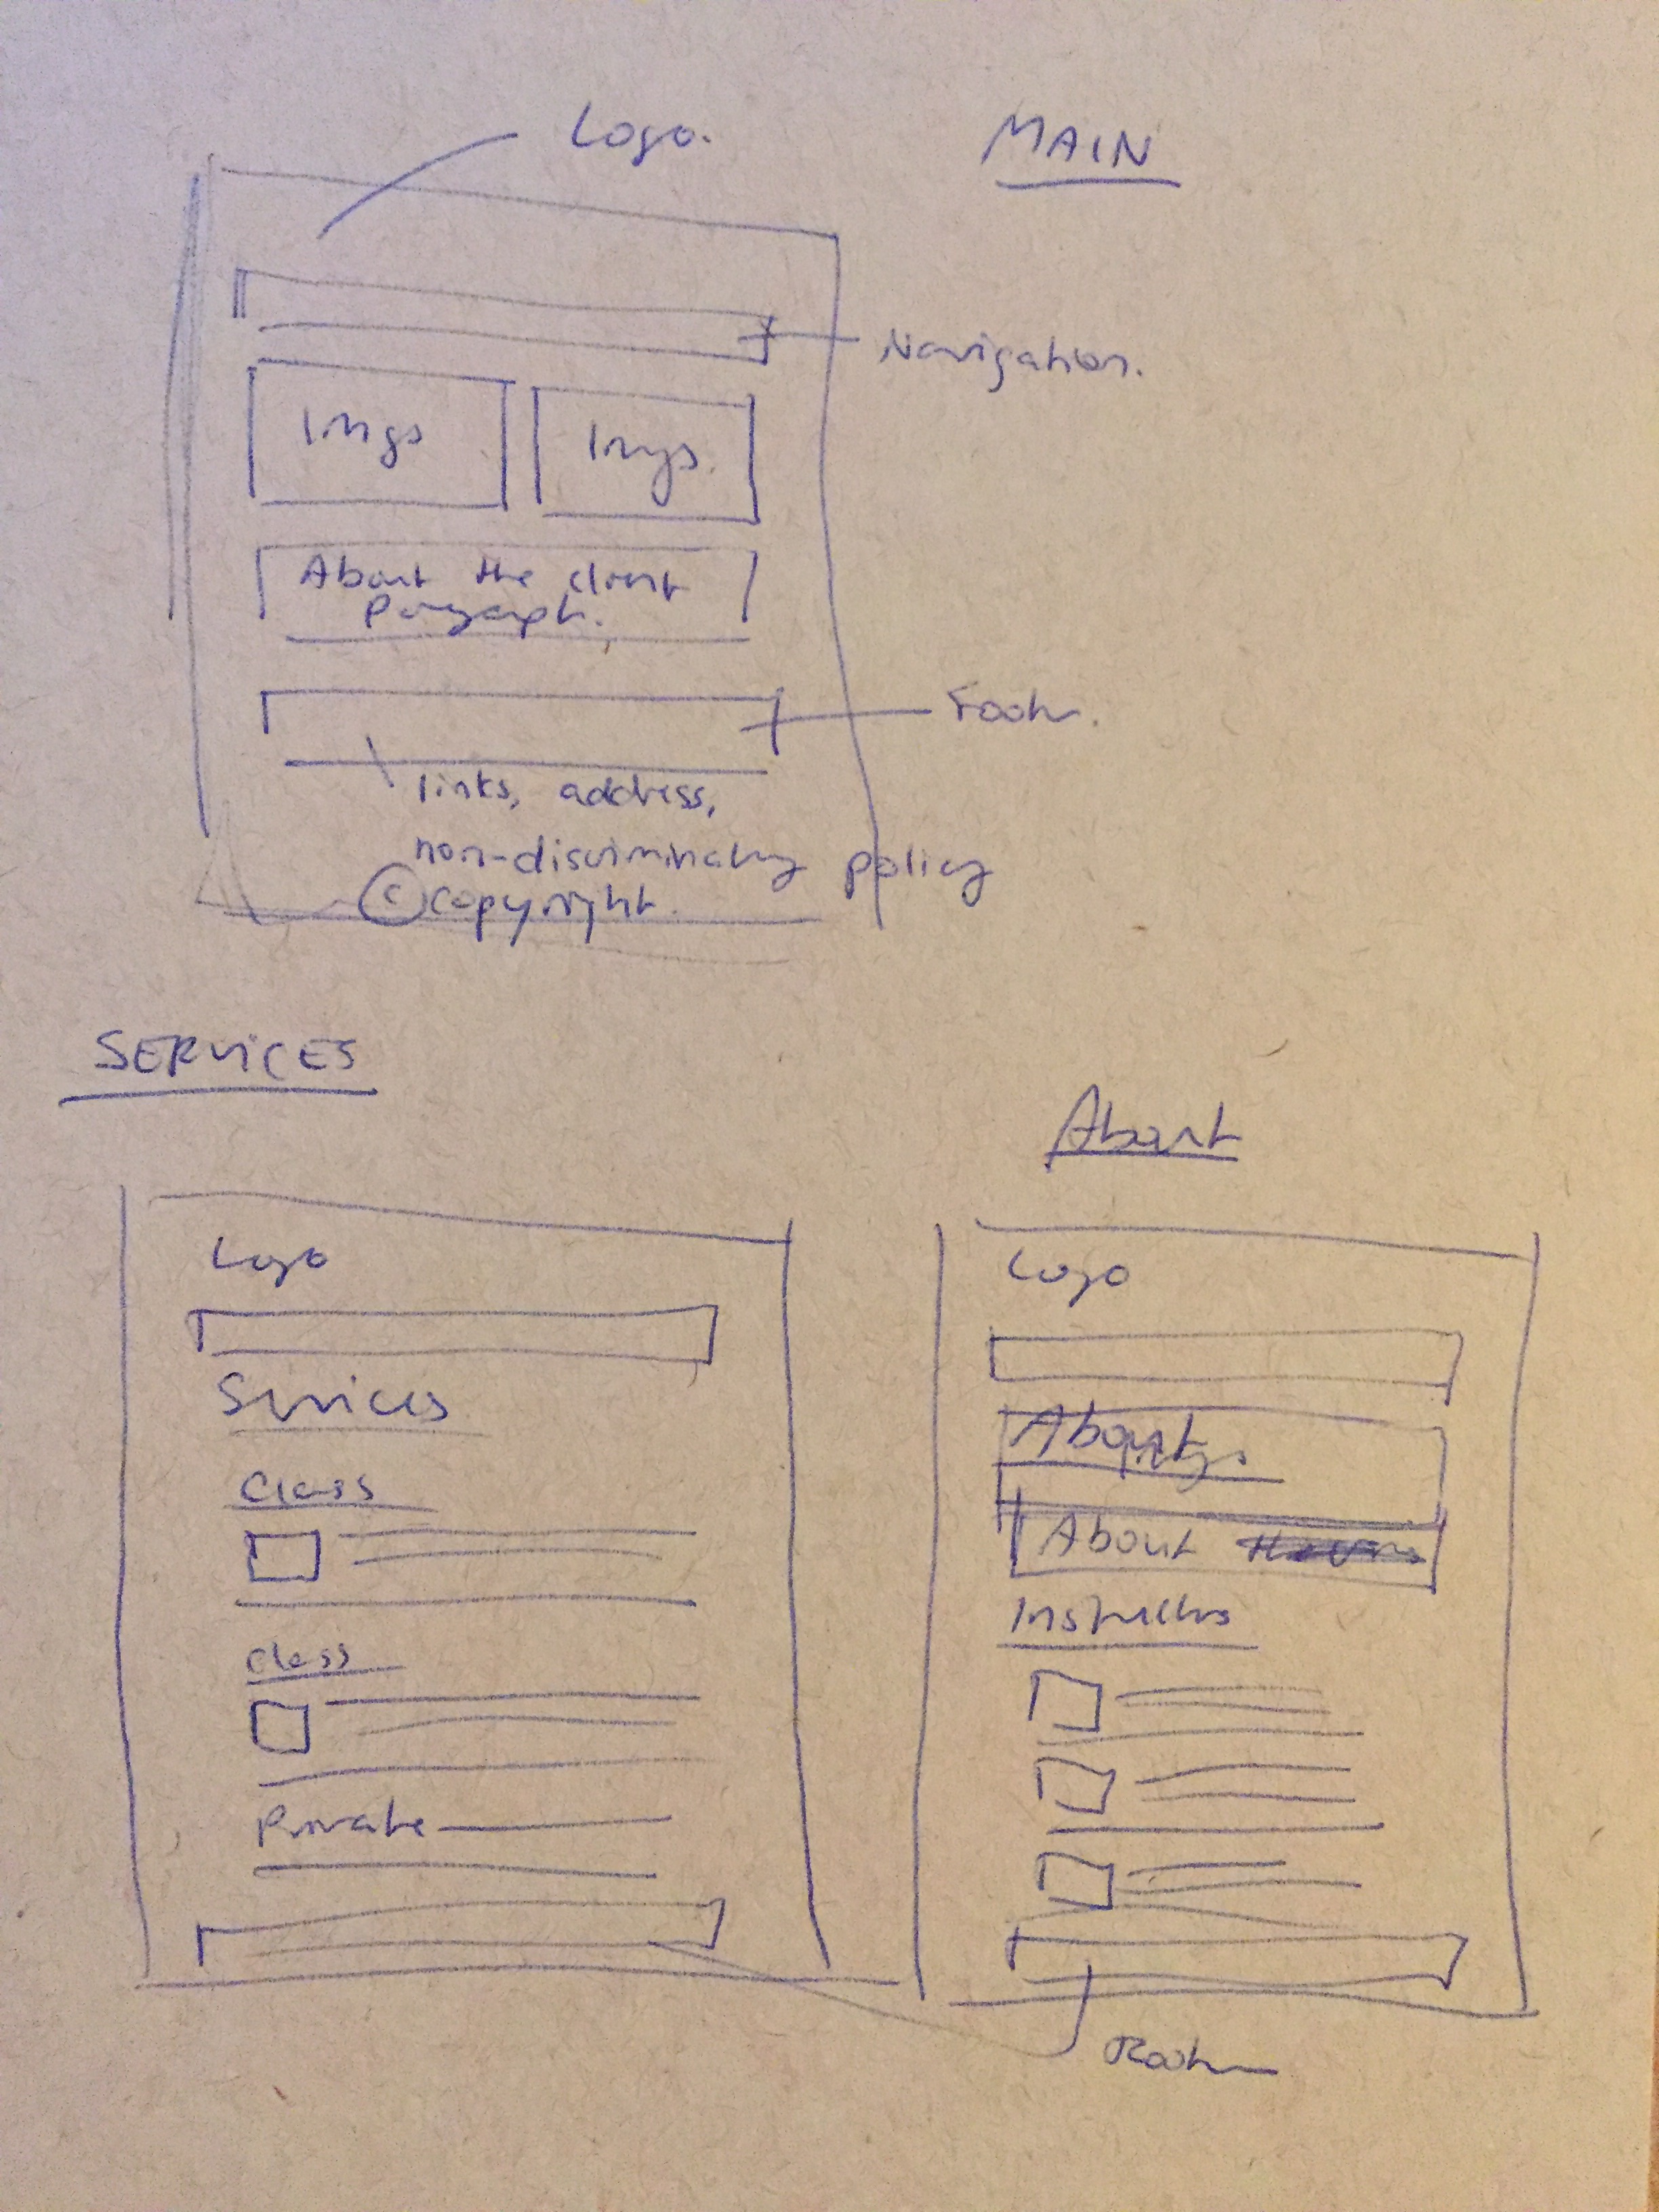 Logo.
MAIN
Navigation.
Imgs
Imgs.
About the client
Paragraph.
Footer.
links, address,
non-discriminatory policy
© copyright.
SERVICES
About
Logo
Services
Class
Class
Private
Logo
About
About
Instructors
Footer